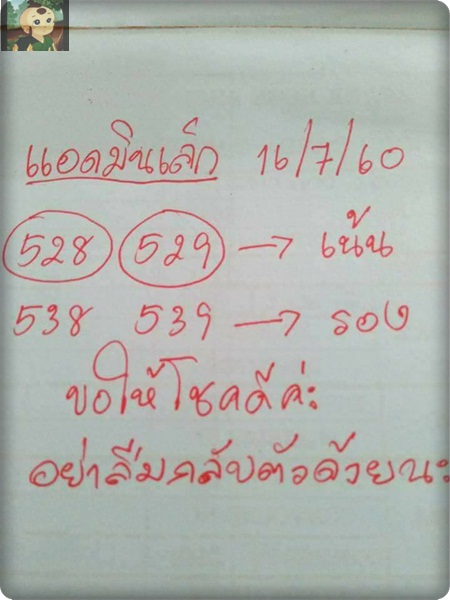 แอดมินเล็ก 16/7/60
528 529 → เน้น
538 539 → รอง
ขอให้โชคดีค่ะ
อย่าลืมกลับตัวด้วยนะ